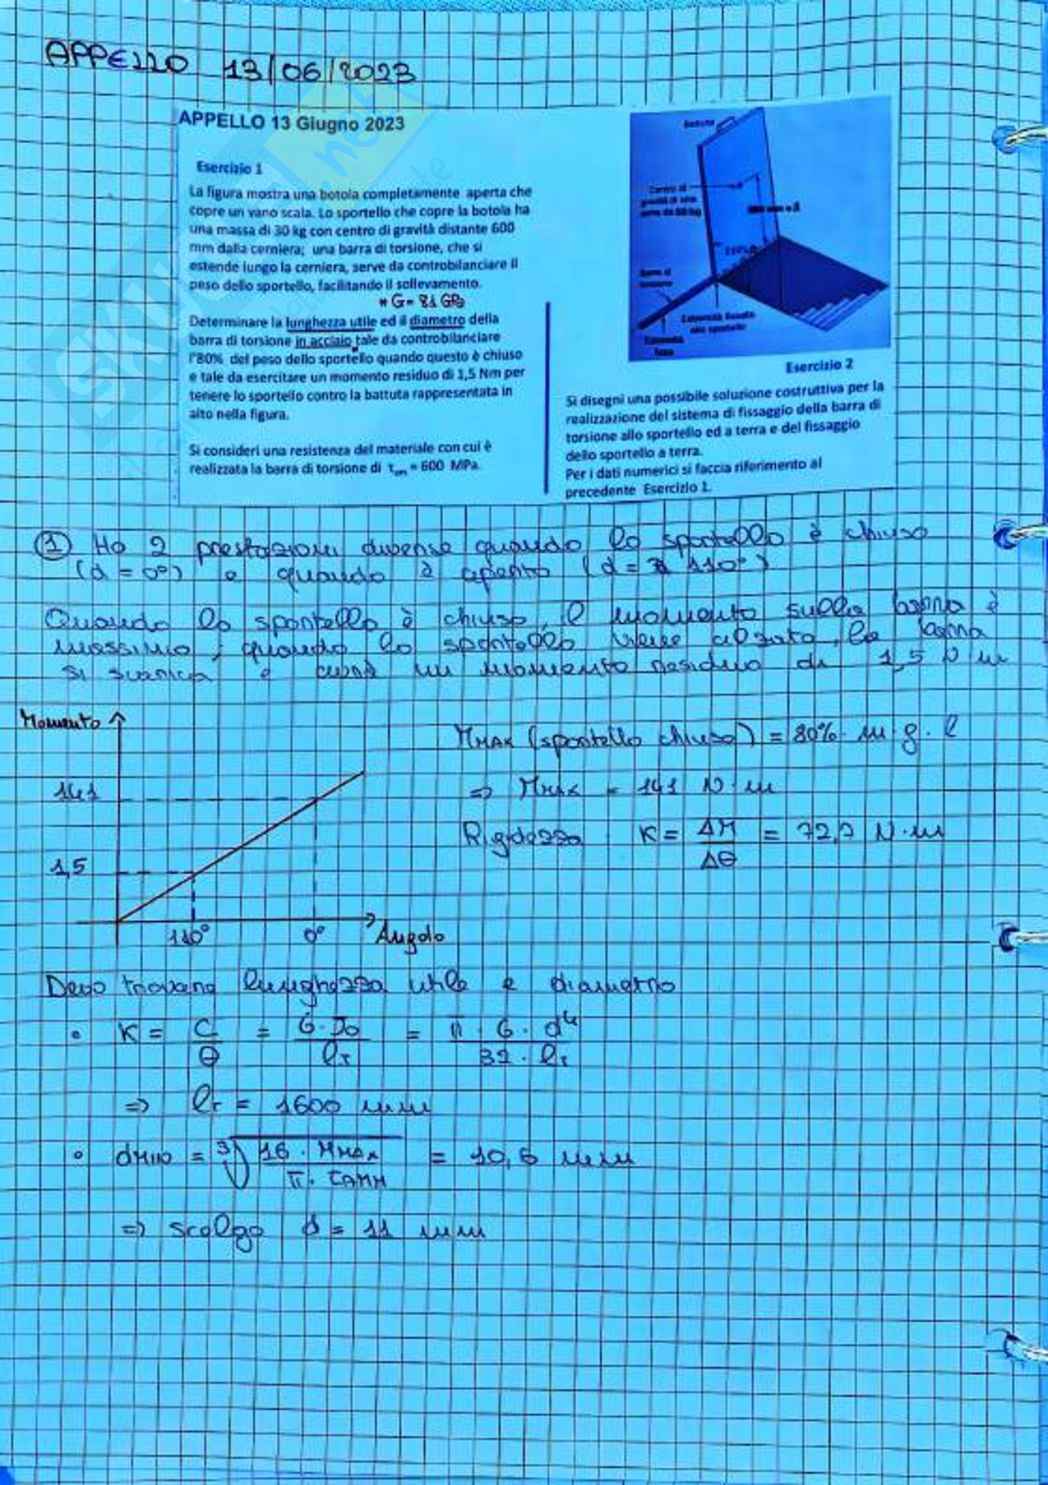 APPELLO 13/06/2023
APPELLO 13 Giugno 2023
Esercizio 1
La figura mostra una botola completamente aperta che
copre un vano scala. Lo sportello che copre la botola ha
una massa di 30 kg con centro di gravità distante 600
mm dalla cerniera; una barra di torsione, che si
estende lungo la cerniera, serve da controbilanciare il
peso dello sportello, facilitando il sollevamento.
* G = 81 GPa
Determinare la lunghezza utile ed il diametro della
barra di torsione in acciaio tale da controbilanciare
l'80% del peso dello sportello quando questo è chiuso
e tale da esercitare un momento residuo di 1,5 Nm per
tenere lo sportello contro la battuta rappresentata in
alto nella figura.
Si consideri una resistenza del materiale con cui è
realizzata la barra di torsione di τam = 600 MPa.
Battuta
Centro di
gravità di una
Barra di
torsione
Estremità fissata
allo sportello
Estremità
fissa
Esercizio 2
Si disegni una possibile soluzione costruttiva per la
realizzazione del sistema di fissaggio della barra di
torsione allo sportello ed a terra e del fissaggio
dello sportello a terra.
Per i dati numerici si faccia riferimento al
precedente Esercizio 1.
① Ho 2 prestazioni diverse quando lo sportello è chiuso
(α = 0°) e quando è aperto (α = 110°)
Quando lo sportello è chiuso, il momento sulla barra è
massimo; quando lo sportello viene alzato, la barra
si scarica e avrà un momento residuo di 1,5 N m
Momento
141
1,5
110°
0°
Angolo
MMAX (sportello chiuso) = 80% m · g · l
=> MMAX = 141 N · m
Rigidezza K = ΔM / Δθ = 72,7 N · m
Devo trovare lunghezza utile e diametro
• K = C / θ = G · J0 / lT = π · G · d⁴ / 32 · lT
=> lT = 1600 mm
• dMIN = ³√(16 · MMAX / π · τAMM) = 10,6 mm
=> scelgo d = 11 mm